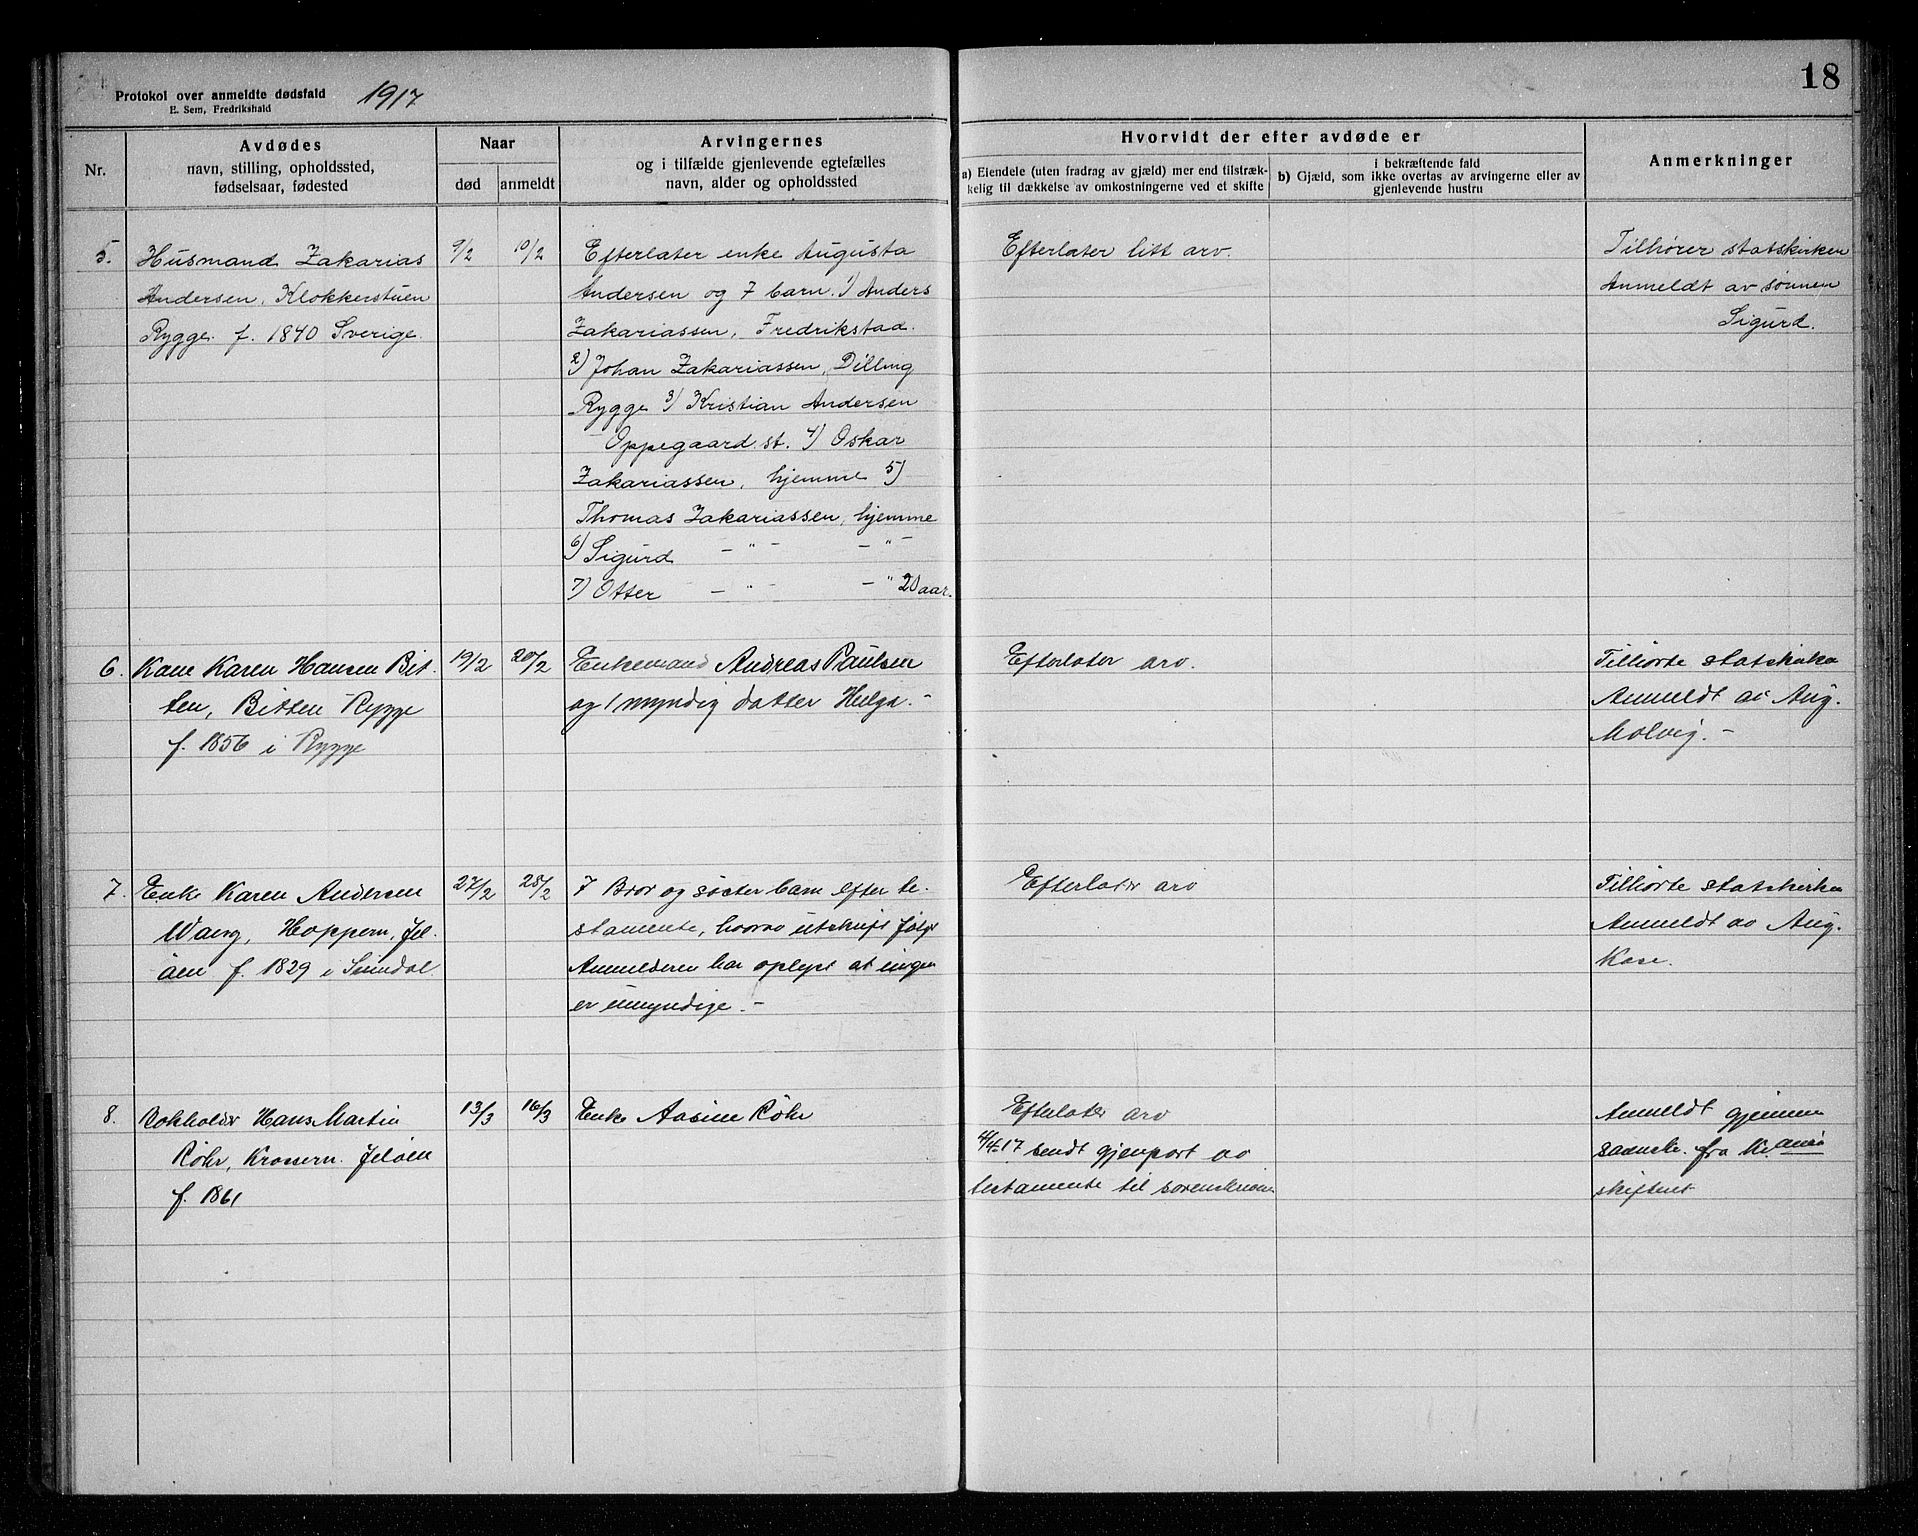 18
Protokol over anmeldte dødsfald 1917
E. Sem, Fredrikshald
Nr.
Avdødes
navn, stilling, opholdssted,
fødselsaar, fødested
Naar
død anmeldt
Arvingernes
og i tilfælde gjenlevende egtefælles
navn, alder og opholdssted
Hvorvidt der efter avdøde er
a) Eiendele (uten fradrag av gjæld) mer end tilstræk-
kelig til dækkelse av omkostningerne ved et skifte
i bekræftende fald
b) Gjæld, som ikke overtas av arvingerne eller av
gjenlevende hustru
Anmerkninger
5.
Husmand Zakarias
Andersen, Klokkerstuen
Rygge. f. 1840 Sverige.
9/2 10/2
Efterlater enke Augusta
Andersen og 7 barn. 1) Anders
Zakariassen, Fredrikstad.
2) Johan Zakariassen, Dilling
Rygge 3) Kristian Andersen
Oppegaard st. 4) Oskar
Zakariassen, hjemme 5)
Thomas Zakariassen, hjemme
6) Sigurd — " — — " —
7) Otter — " — — " 20 aar.
Efterlater litt arv.
Tilhører statskirken
Anmeldt av sønnen
Sigurd.
6.
Kone Karen Hansen Bit-
ten, Bitten Rygge
f. 1856 i Rygge
19/2 20/2
Enkemand Andreas Paulsen
og 1 myndig datter Helga. -
Efterlater arv.
Tilhørte statskirken
Anmeldt av Aug.
Molvig. -
7.
Enke Karen Andersen
Wang, Hoppern, Jel-
øen f. 1829 i
27/2 28/2
7 Bror og søster barn efter te-
stamente, hvorav utskrift følger
Anmelderen har oplyst at ingen
er umyndige. -
Efterlater arv
Tilhørte statskirken
Anmeldt av Aug.
8.
Bokholder Hans Martin
Røhr, Krossern. Jeløen
f. 1861
13/3 16/3
Enke Aasine Røhr
Efterlater arv
4/4.17 sendt gjenpart av
testamente til sorenskriveren
Anmeldt gjennem
fra Kr.ania
skifteret